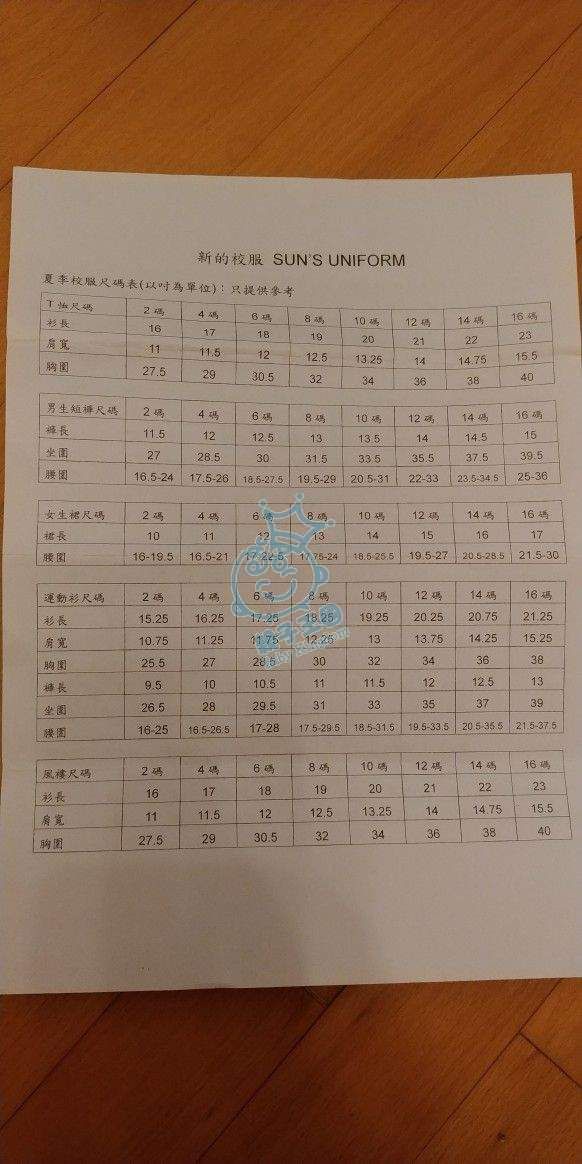 新的校服 SUN'S UNIFORM
夏季校服尺碼表(以吋為單位)：只提供參考
T恤尺碼 2 碼 4 碼 6 碼 8 碼 10 碼 12 碼 14 碼 16 碼
衫長 16 17 18 19 20 21 22 23
肩寬 11 11.5 12 12.5 13.25 14 14.75 15.5
胸圍 27.5 29 30.5 32 34 36 38 40
男生短褲尺碼 2 碼 4 碼 6 碼 8 碼 10 碼 12 碼 14 碼 16 碼
褲長 11.5 12 12.5 13 13.5 14 14.5 15
坐圍 27 28.5 30 31.5 33.5 35.5 37.5 39.5
腰圍 16.5-24 17.5-26 18.5-27.5 19.5-29 20.5-31 22-33 23.5-34.5 25-36
女生裙尺碼 2 碼 4 碼 6 碼 8 碼 10 碼 12 碼 14 碼 16 碼
裙長 10 11 12 13 14 15 16 17
腰圍 16-19.5 16.5-21 17-22.5 17.75-24 18.5-25.5 19.5-27 20.5-28.5 21.5-30
運動衫尺碼 2 碼 4 碼 6 碼 8 碼 10 碼 12 碼 14 碼 16 碼
衫長 15.25 16.25 17.25 18.25 19.25 20.25 20.75 21.25
肩寬 10.75 11.25 11.75 12.25 13 13.75 14.25 15.25
胸圍 25.5 27 28.5 30 32 34 36 38
褲長 9.5 10 10.5 11 11.5 12 12.5 13
坐圍 26.5 28 29.5 31 33 35 37 39
腰圍 16-25 16.5-26.5 17-28 17.5-29.5 18.5-31.5 19.5-33.5 20.5-35.5 21.5-37.5
風褸尺碼 2 碼 4 碼 6 碼 8 碼 10 碼 12 碼 14 碼 16 碼
衫長 16 17 18 19 20 21 22 23
肩寬 11 11.5 12 12.5 13.25 14 14.75 15.5
胸圍 27.5 29 30.5 32 34 36 38 40